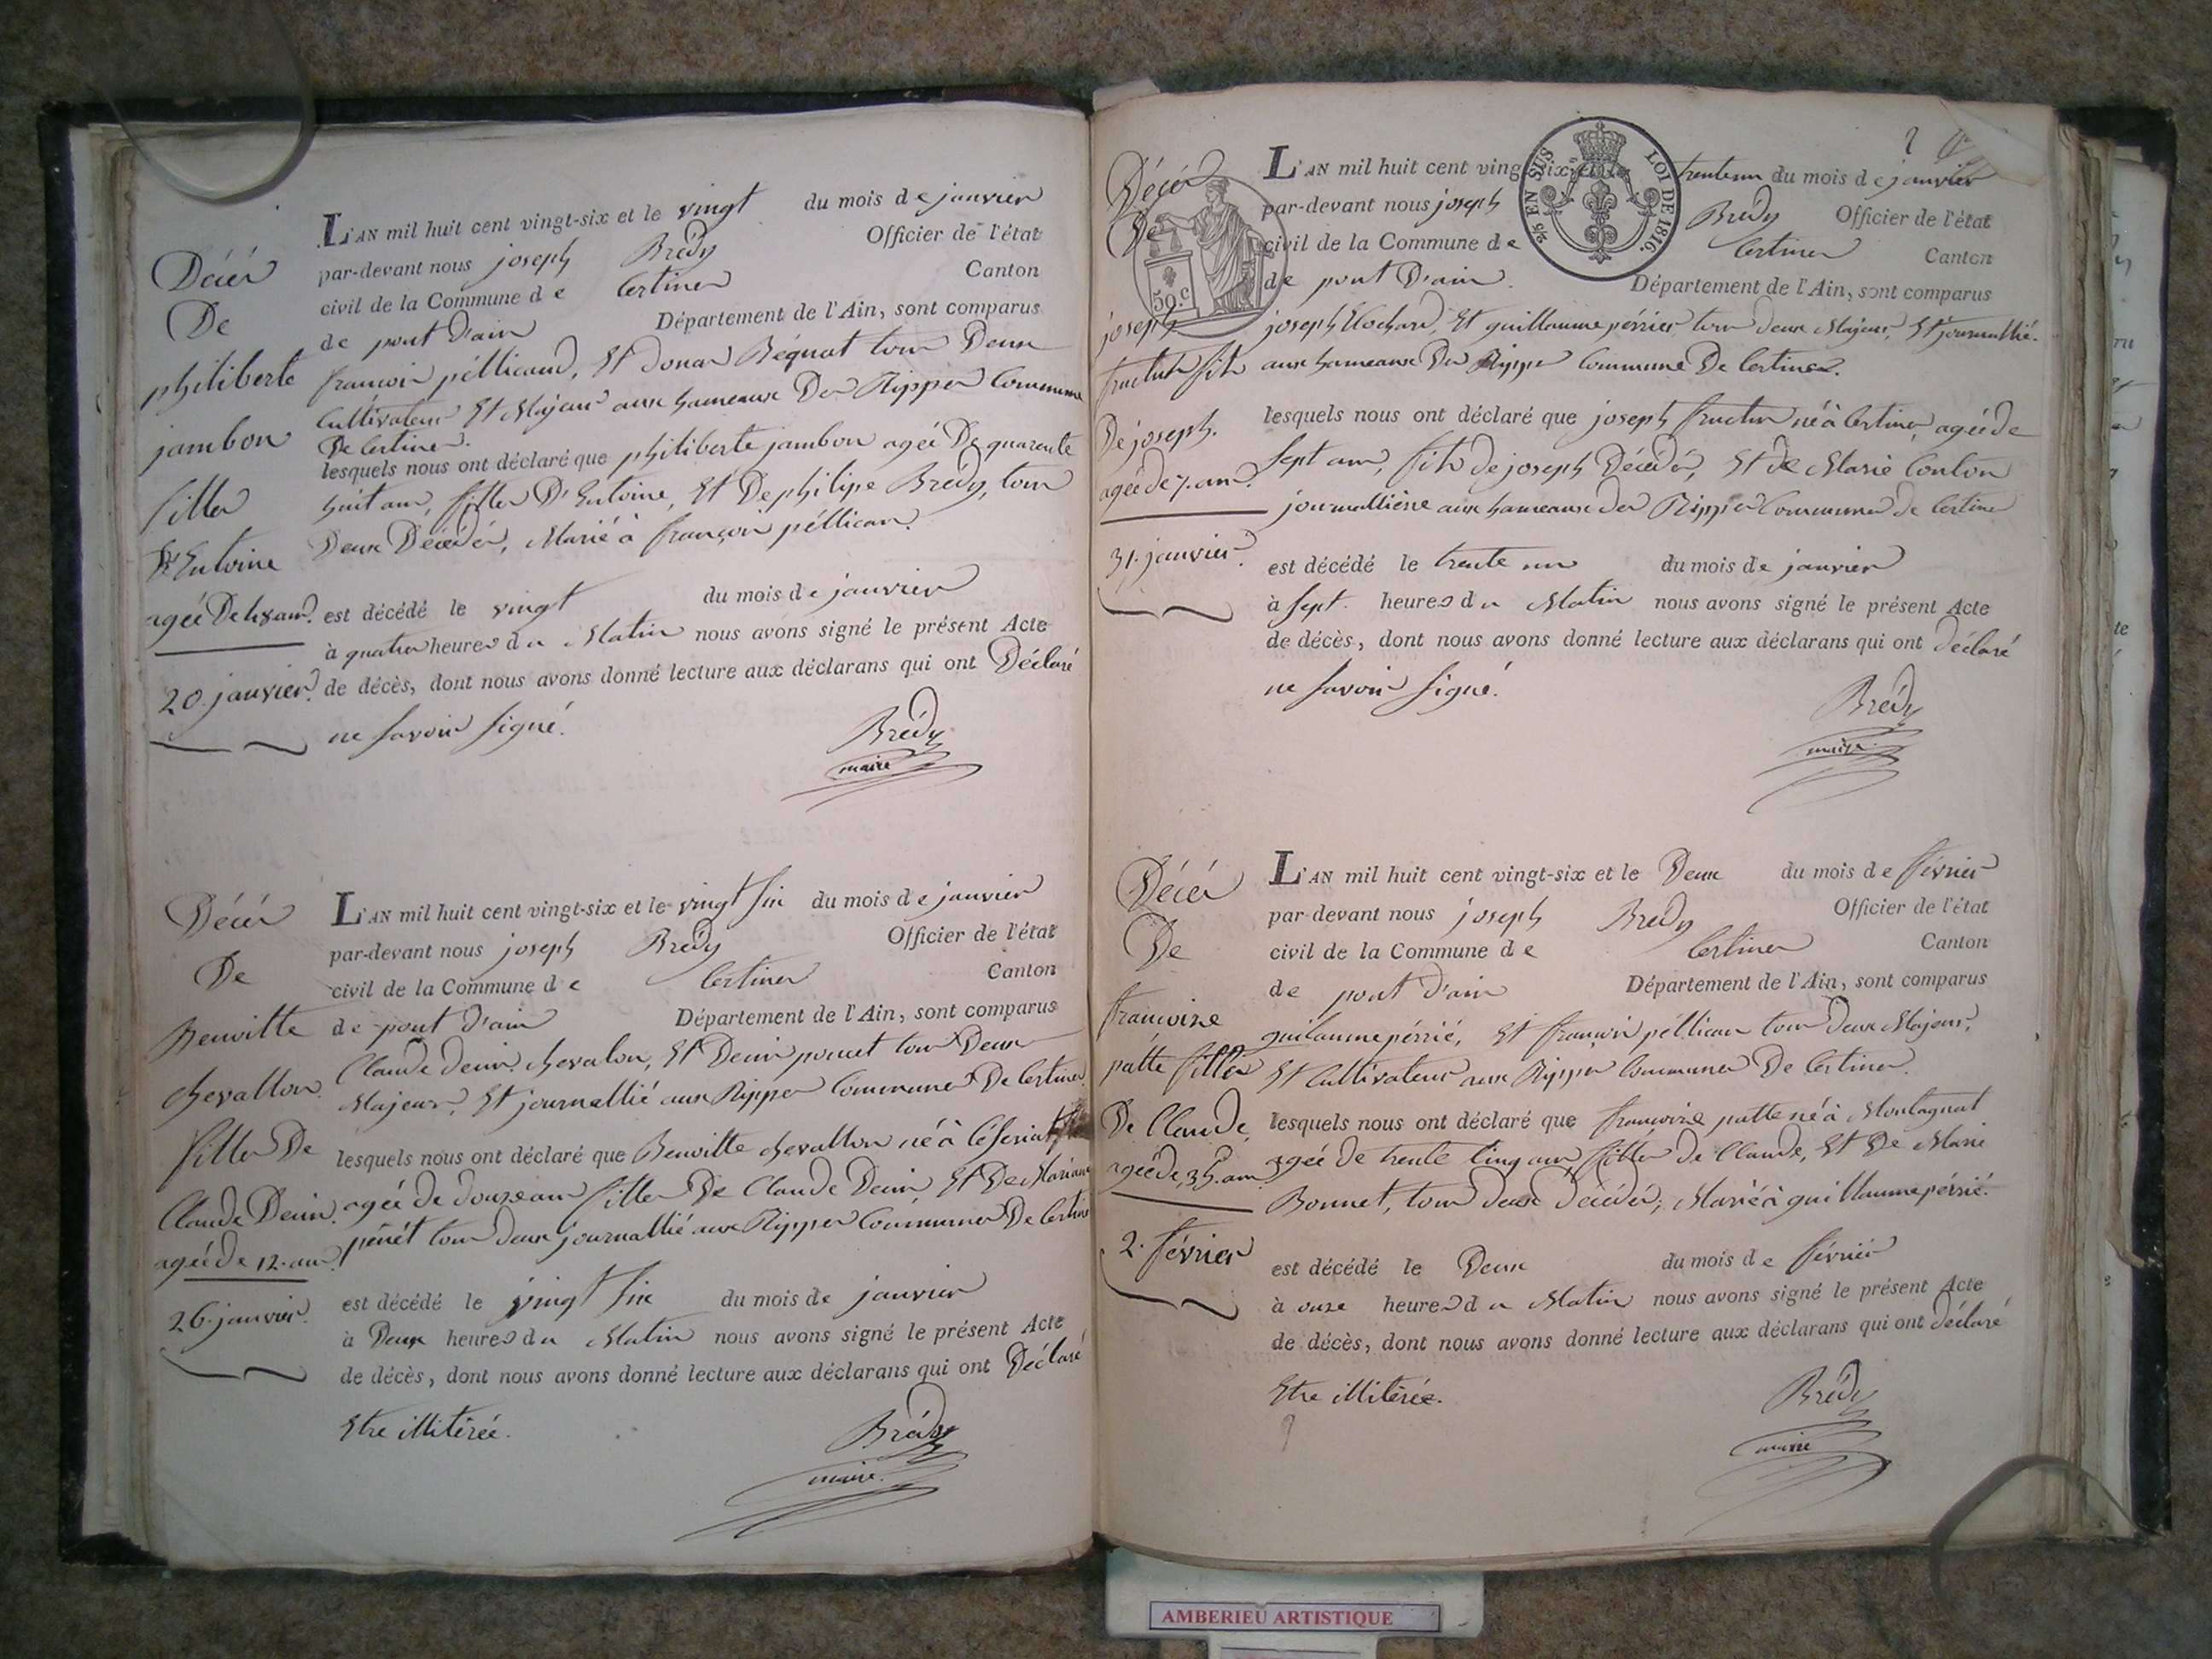 Décés
De
philiberte
jambon
fille
D'Entoine
agée De 48 ans.
20. janvier.
L'AN mil huit cent vingt-six et le vingt du mois de janvier
par-devant nous joseph Brédy Officier de l'état
civil de la Commune de Certines Canton
de pont d'ain Département de l'Ain, sont comparus
françois péllicand, Et Béquat tous Deux
Cultivateur Et Majeur aux hameaux Des Rippes Commune
De Certines.
lesquels nous ont déclaré que philiberte jambon agée De quarente
huit ans, fille D'Entoine, Et De philipe Brédy, tous
Deux Décédés, Marié à françois péllican.
est décédé le vingt du mois de janvier
à quatre heures du Matin nous avons signé le présent Acte
de décès, dont nous avons donné lecture aux déclarans qui ont Déclaré
ne savoir signé.
Brédy
maire
Décés
De
Benoitte
chevallon
fille De
Claude Denis.
agée de 12. ans
26. janvier.
L'AN mil huit cent vingt-six et le vingt six du mois de janvier
par-devant nous joseph Brédy Officier de l'état
civil de la Commune de Certines Canton
de pont d'ain Département de l'Ain, sont comparus
Claude denis chevalon, Et Denis poncet tous Deux
Majeur, Et journallié aux Rippes Commune De Certines
lesquels nous ont déclaré que Benoitte chevallon né à
agée de douze ans fille De Claude Denis, Et De Mariane
penét tous deux journallié aux Rippes Commune De Certines
est décédé le vingt six du mois de janvier
à Deux heures du Matin nous avons signé le présent Acte
de décès, dont nous avons donné lecture aux déclarans qui ont Déclaré
Etre illitérée.
Brédy
maire.
Décés
De
joseph
fructus fils
De joseph.
agée de 7. ans.
31. janvier.
50.c
2/5 EN SUS LOI DE 1816.
L'AN mil huit cent vingt-six et le trente un du mois de janvier
par-devant nous joseph Brédy Officier de l'état
civil de la Commune de Certines Canton
de pont D'ain. Département de l'Ain, sont comparus
joseph Clochard, Et guillaume périer tous deux Majeur, Et journallié.
aux hameaux Des Rippes Commune De Certines.
lesquels nous ont déclaré que joseph fructus né à Certines agée de
Sept ans, fils de joseph Décédés, Et de Marie Conton
journallière aux hameaux des Rippes Commune de Certines
est décédé le trente un du mois de janvier
à sept. heures du Matin nous avons signé le présent Acte
de décès, dont nous avons donné lecture aux déclarans qui ont déclaré
ne savoir signé.
Brédy
maire.
Décés
De
françoise
patte fille
De Claude
agée de 35. ans
2. février
L'AN mil huit cent vingt-six et le Deux du mois de février
par-devant nous joseph Brédy Officier de l'état
civil de la Commune de Certines Canton
de pont d'ain Département de l'Ain, sont comparus
guilaume périé, Et françois péllican tous deux Majeur,
Et Cultivateur aux Rippes Commune De Certines.
lesquels nous ont déclaré que françoise patte né à Montagnat
agée de trente cinq ans fille de Claude, Et De Marie
Bonnet, tous deux décédés, Marié à guillaume périé.
est décédé le Deux du mois de février
à onze heures du Matin nous avons signé le présent Acte
de décès, dont nous avons donné lecture aux déclarans qui ont déclaré
Etre illitérée.
Brédy
maire
AMBERIEU ARTISTIQUE